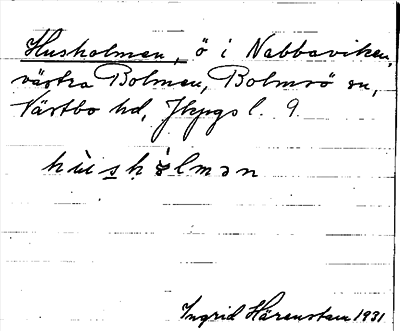 Husholmen, ö i Nabbaviken,
västra Bolmen, Bolmsö sn,
Västbo hd, Jkpgs l. 9.
hùshòlmən
Ingrid Härenstam 1931